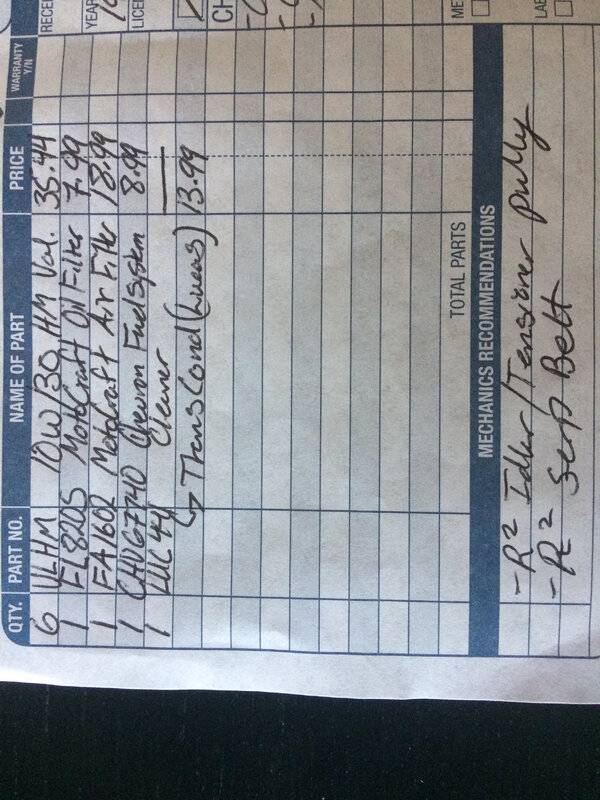 QTY. PART NO. NAME OF PART PRICE WARRANTY Y/N
6 VLHM 10W/30 HM Val. 35.94
1 FL820S MotorCraft Oil Filter 7.99
1 FA1602 Motorcraft Air Filter 18.99
1 CHV67740 Chevron Fuel System 8.99
1 LUC441 Cleaner
↳ Trans Cond (Lucas) 13.99
TOTAL PARTS
MECHANICS RECOMMENDATIONS
-R² Idler/Tensioner pully
-R² Serp Belt
RECE
YEAR
LICE
CH
ME
LAB